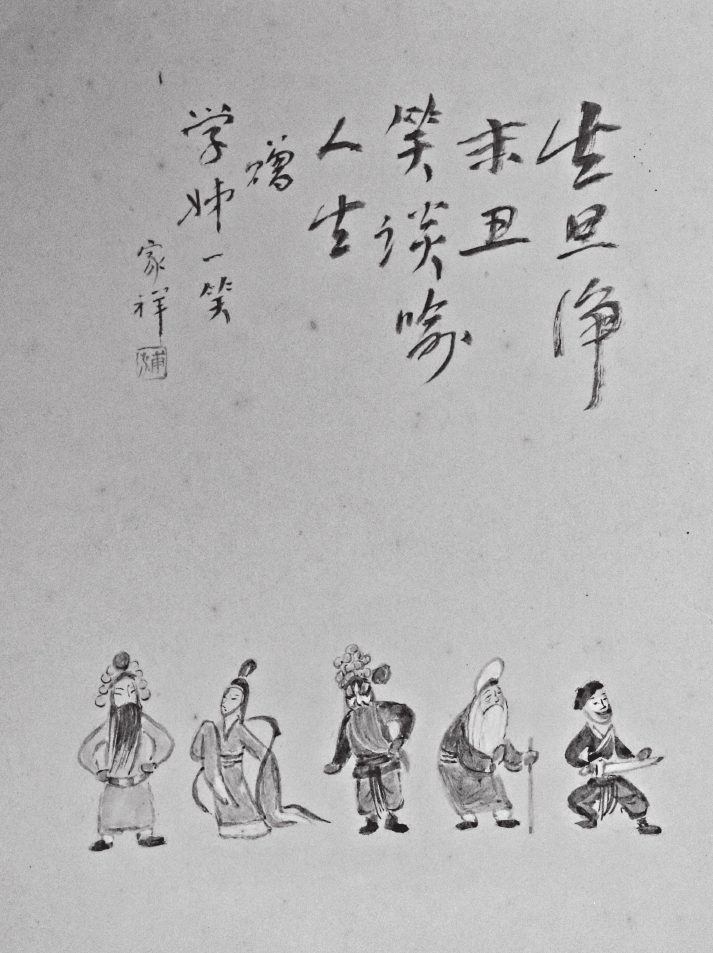 生旦净
末丑
笑谈喻
人生
赠
学姊一笑
家祥